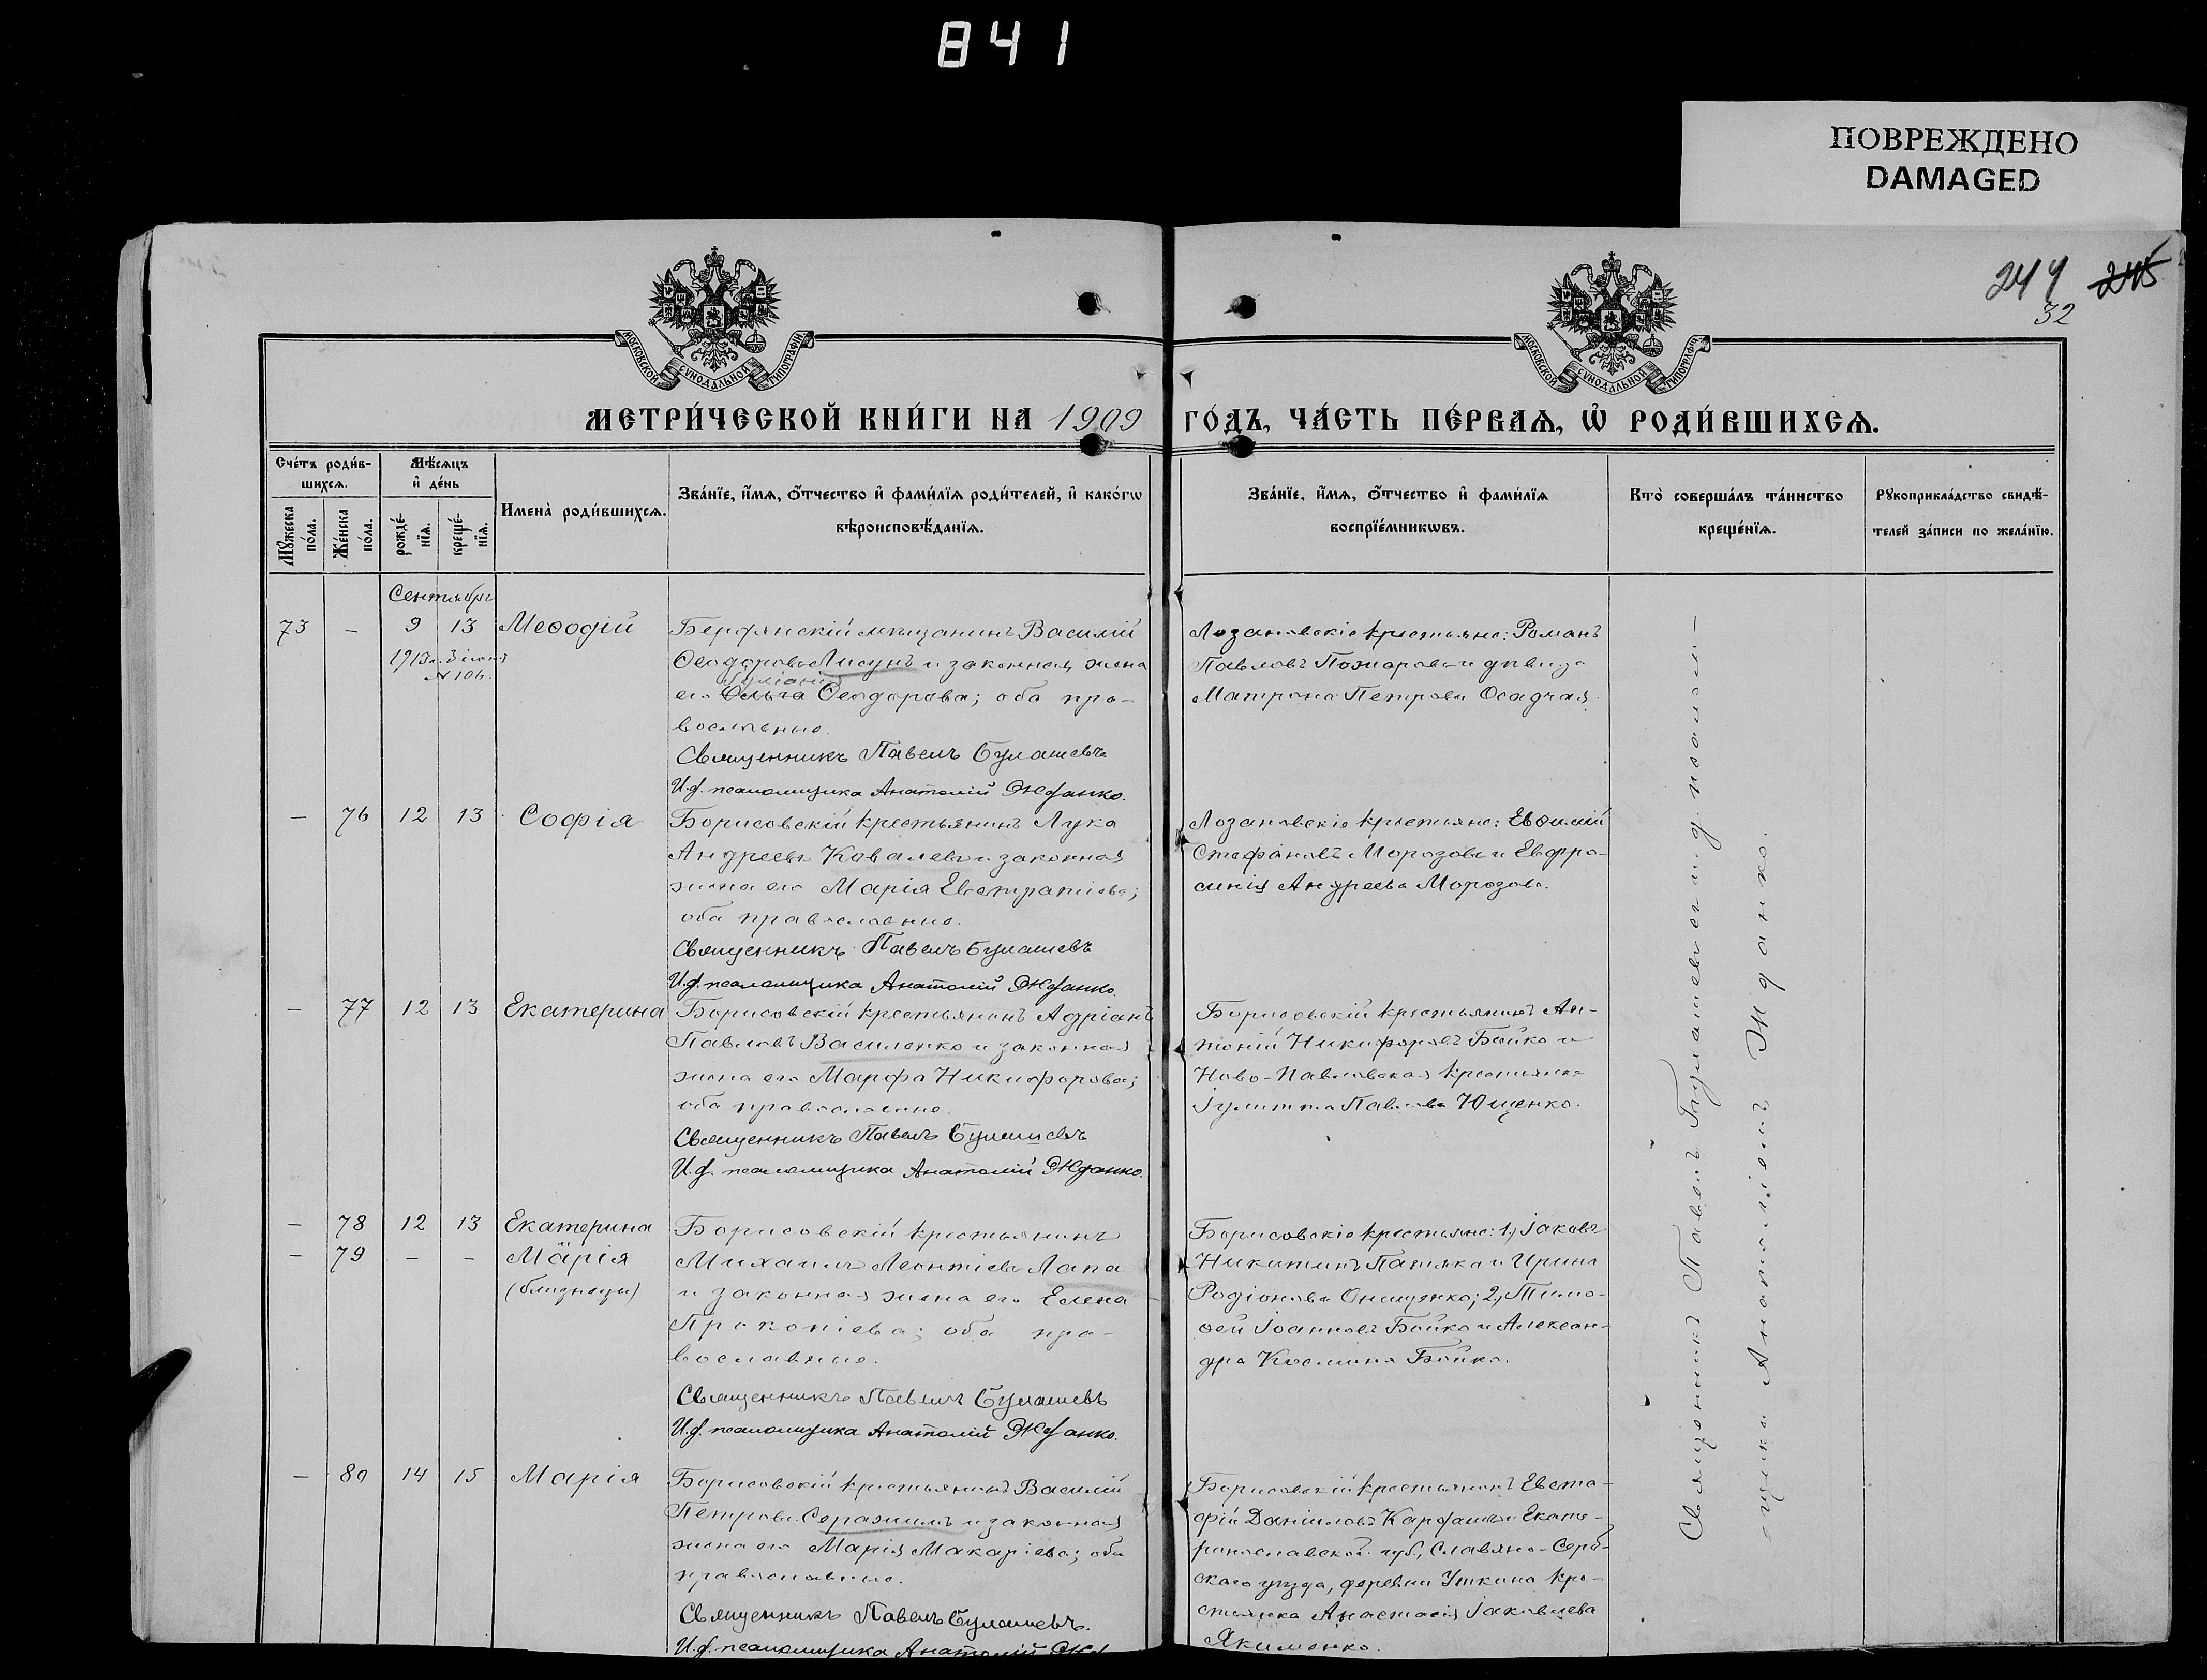 841
ПОВРЕЖДЕНО
DAMAGED
244 245
32
МОСКОВСКОЙ СУНОДАЛЬНОЙ ТИПОГРАФІИ
МОСКОВСКОЙ СУНОДАЛЬНОЙ ТИПОГРАФІИ
МЕТРИ́ЧЕСКОЙ КНИ́ГИ НА 1909 ГО́ДЪ, ЧА́СТЬ ПЕ́РВАѦ, Ѡ҆ РОДИ́ВШИХСѦ.
Сче́тъ роди́в-
шихсѧ.
Мꙋ́жеска по́ла.
Же́нска по́ла.
Мѣ́сѧцъ
и҆ де́нь
рожде́-
нїѧ.
креще́-
нїѧ.
Имена̀ роди́вшихсѧ.
Зва́нїе, и҆́мѧ, ѻ҆́тчество и҆ фами́лїѧ роди́телей, и҆ како́гѡ
вѣроисповѣ́данїѧ.
Зва́нїе, и҆́мѧ, ѻ҆́тчество и҆ фами́лїѧ
воспрїе́мникѡвъ.
Кто̀ соверша́лъ та́инство
креще́нїѧ.
Рꙋкоприкла́дство свидѣ́-
телей за́писи по жела́нїю.
Сентябрь
73 — 9 13 Меѳодій
1913 г. 3 іюня
№ 106.
Бердянскій мѣщанинъ Василій
Ѳеодоровъ Лисунъ и законная жена
Іуліанія
его Ольга Ѳеодорова; оба пра-
вославные.
Священникъ Павелъ Булашевъ
И.д. псаломщика Анатолій Жданко.
Лозановскіе крестьяне: Романъ
Павловъ Пожаровъ и дѣвица
Матрона Петрова Осадчая.
— 76 12 13 Софія
Борисовскій крестьянинъ Лука
Андреевъ Ковалевъ и законная
жена его Марія Евстратіева;
оба православные.
Священникъ Павелъ Булашевъ
И.д. псаломщика Анатолій Жданко.
Лозановскіе крестьяне: Евѳимій
Стефановъ Морозовъ и Евфро-
синія Андреева Морозова.
— 77 12 13 Екатерина
Борисовскій крестьянинъ Адріанъ
Павловъ Василенко и законная
жена его Марфа Никифорова;
оба православные.
Священникъ Павелъ Булашевъ
И.д. псаломщика Анатолій Жданко.
Борисовскій крестьянинъ Ан-
тоній Никифоровъ Бойко и
Ново-Павловская крестьянка
Іулитта Павлова Ющенко.
— 78 12 13 Екатерина
— 79 — — Марія
(близнецы)
Борисовскій крестьянинъ
Михаилъ Леонтіевъ Лапа
и законная жена его Елена
Прокопіева; оба пра-
вославные.
Священникъ Павелъ Булашевъ
И.д. псаломщика Анатолій Жданко.
Борисовскіе крестьяне: 1, Іаковъ
Никитинъ и Ирина
Родіонова Онищенко; 2, Тимо-
ѳей Іоанновъ Бойко и Алексан-
дра Космина Бойко.
— 80 14 15 Марія
Борисовскій крестьянинъ Василій
Петровъ Серажимъ и законная
жена его Марія Макаріева; оба
православные.
Священникъ Павелъ Булашевъ.
И.д. псаломщика Анатолій
Борисовскій крестьянинъ Евста-
фій Даніиловъ и Екате-
ринославской губ., Славяно-Серб-
скаго уѣзда, деревни Уткина кре-
стьянка Анастасія Іаковлева
Якименко.
Священникъ Павелъ Булашевъ и д. псалом-
щика Анатолій Жданко.